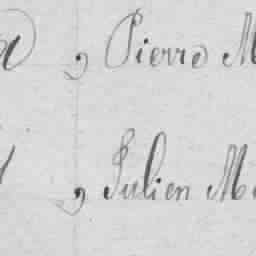 , Pierre M
, Julien M